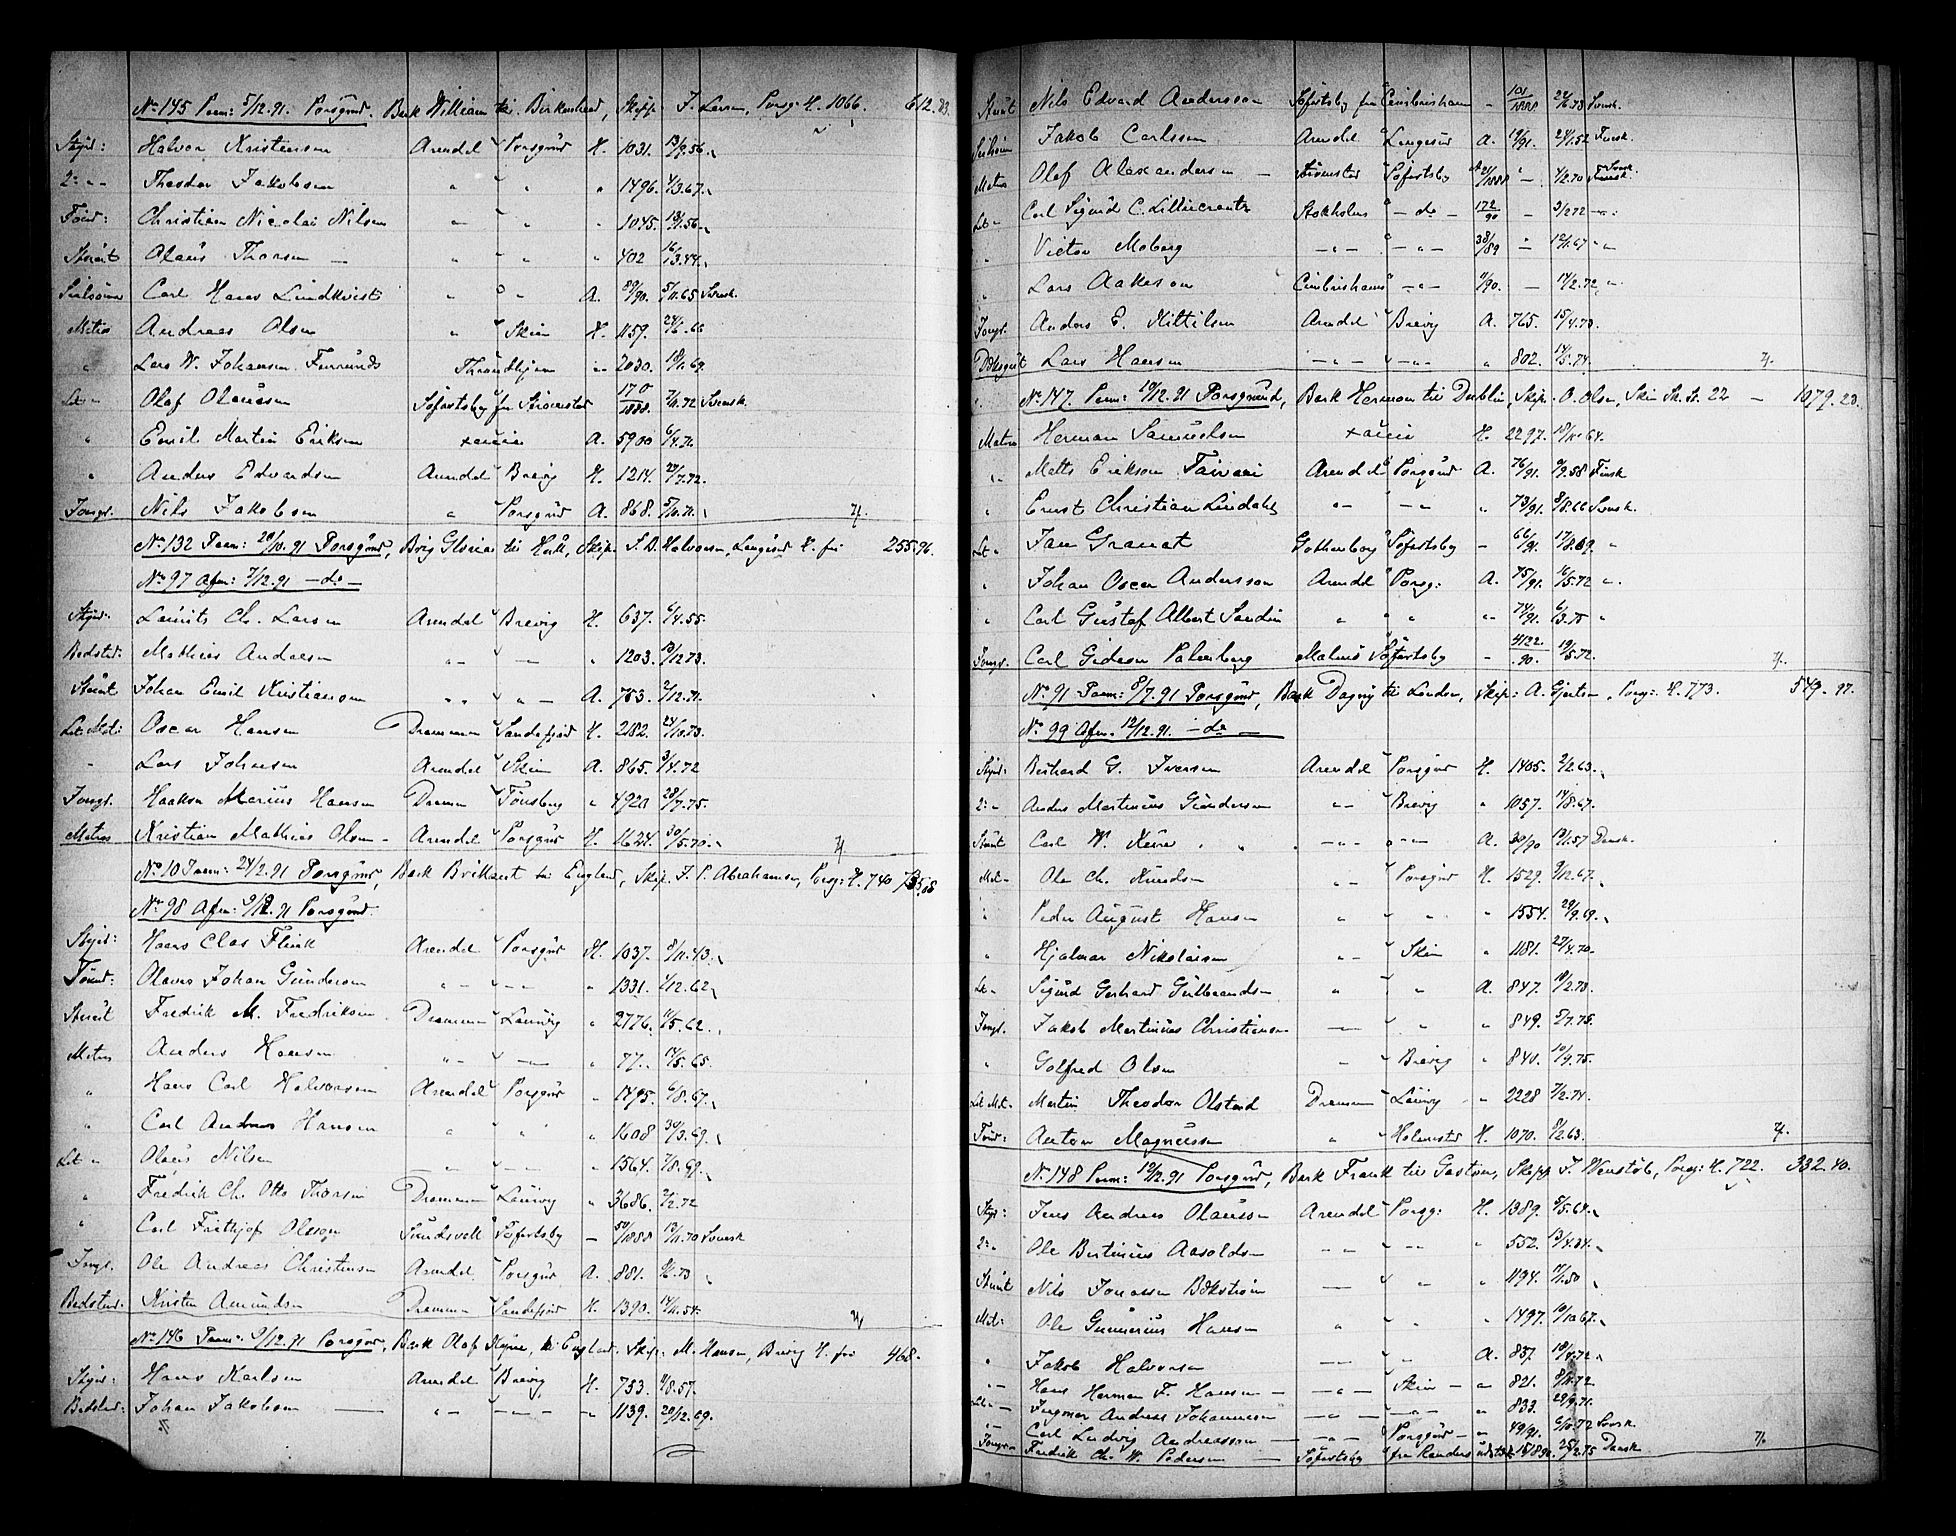 No 145 Paam: 5/12.91. Porsgrund. Bark William til Birkenhead, Skipp. J. Larsen, Porsg: H. 1066. 612.83.
Styrd: Halvor Kristensen Arendal Porsgrund H. 1031. 13/9.56.
2den " Theodor Jakobsen " " " 1496. 4/3.67.
Tømd: Christian Nicolai Nilsen " " " 1045. 18/1.56.
Stuert Olaus Thorsen " " " 402 16/3.44.
Seilsømm Carl Hans Lindkvist " " A. 89/90. 5/11.65 Svensk.
Matros Andreas Olsen " Skien H. 1159. 24/6.66
" Lars W. Johansen Furrunds Throndhjem " 2030. 18/1.69.
Let " Olaf Olausen Søfartsby fra Strømstad 170/1888. 7/11.72 Svensk.
" Emil Martin Eriksen A. 5900 6/4.71.
" Anders Edvardsen Arendal Brevig H. 1214. 27/7.72.
Jongm. Nils Jakobsen " Porsgrund A. 868. 5/10.71. 7/.
No 132 Paam: 20/10.91 Porsgrund, Brig Glorias til Hull, Skip. S. B. Halvorsen, Langesund H. fri 255.96.
No 97 Afm: 7/12.91 – do –
Styrd: Laurits Ch. Larsen Arendal Brevig H. 637. 6/4.55.
Bedsted: Mathias Andersen " " " 1203. 13/12 73.
Stuert Johan Emil Kristiansen " " A. 753. 2/12.71.
Let Mat: Oscar Hansen Drammen Sandefjord H. 2182. 24/10.73.
" Lars Johnsen Arendal Skien A. 865. 3/4.72
Jongm. Haakon Marius Hansen Drammen Tønsberg " 4920 28/7.75.
Matros Kristian Mathias Olsen Arendal Porsgrund H. 1624. 30/5.70. 7/.
No 10 Paam: 24/2.91 Porsgrund, Bark Brillant til England, Skip. J. P. Abrahamsen, Porsg: H. 740
No 98 Afm: 9/12.91 Porsgrund.
Styrd: Hans Clas Flink Arendal Porsgrund H. 1037. 8/11.43.
Tømd: Olaves Johan Gundersen " " " 1331. 1/12.62.
Stuert Fredrik M. Fredriksen Drammen Laurvig " 2776. 11/5.62.
Matros Anders Hansen " " " 77. 14/5.65.
" Hans Carl Halvorsen Arendal Porsgrund " 1495. 6/8.67.
" Carl Andreas Hansen " " " 1608 30/3.69.
Let " Olaus Nilsen " " " 1564. 7/8.69.
" Fredrik Ch. Otto Thorsen Drammen Laurvig " 3686. 2/2.72
" Carl Frithjof Olsson Sundsvall Søfartsby – 50/1888 13/11.70 Svensk
Jongm. Ole Andreas Christensen Arendal Porsgrund A. 881. 9/6.73
Bedsted. Kristen Amundsen Drammen Sandefjord H. 1390. 14/11.54. 7/.
No 146 Paam: 9/12.91 Porsgrund, Bark Olaf Kyrre, til England. Skip. M. Hansen, Brevig H. fri 468.
Styrd: Hans Karlsen Arendal Brevig H. 753. 11/8.57.
Bedsted: Johan Jakobsen " " " 1139. 20/12.69.
Stuert Nils Edvard Andersson Søfartsby fra Cimbrishamn – 101/1888 22/6.73 Svensk.
Seilsømm Jakob Carlsson Arendal Langesund A. 19/91. 24/1.52 Finsk.
Matros Olof Alexandersen Strømstad Søfartsby 1888 – 4/2.70 Svensk.
Let " Carl Sigurd C. Lilliecreutz Stokholm – do – 172/90 – 3/2 72 "
" Victor Moberg " " 38/89 – 10/11.67 "
" Lars Aakeson Cimbrishamn " 11/90. – 14/2.72 "
Jongm. Anders E. Kittilsen Arendal Brevig A. 765. 15/4.73.
Dæksgut Lars Hansen " " " 802. 14/5.74. 7/.
No 147. Paam: 10/12.91 Porsgrund, Bark Herman til Dublin, Skip. O. Olsen, Skien Sk. St. 22 – 1079.23.
Matros Herman Samuelsen H. 2297. 18/10 64.
" Matts Erikson Taivari Arendal Porsgrund A. 76/91. 9/9.58 Finsk
" Ernst Christian Lindahl " " " 73/91. 8/8.66 Svensk.
Let " Jan Granat Gothenborg Søfartsby – 66/91. 17/8.69. "
" Johan Oscar Andersson Arendal Porsg: A. 75/91. 16/5.72 "
" Carl Gustaf Albert Sandin " " " 74/91. 6/3.75 "
Jongm. Carl Gideon Palmberg Malmø Søfartsby – 4122/90. 19/5.72. 7/.
No 91 Paam: 8/7.91 Porsgrund, Bark Dagny til London, Skip: A. Gjertsen, Porsg: H. 773. 549.97.
No 99 Afm. 12/12.91. – do –
Styrd: Berthard G. Iversen Arendal Porsgrund H. 1405. 2/2.63.
2: " Anders Martinius Gundersen " Brevig " 1057. 14/8.67.
Stuert Carl W. Xeire " " A. 30/90 19/1.57 Dansk.
Mat: Ole Ch. Knudsen " Porsgrund H. 1529. 9/12.67.
" Peder August Hansen " " " 1554. 29/9.69.
" Hjalmar Nikolaisen " Skien " 1181. 27/4.70.
Let " Sigurd Gerhard Gulbrandsen " " A. 847. 18/2.73.
Jongm. Jakob Martinius Christiansen " " " 849. 5/7.75.
" Golfred Olsen " Brevig " 840. 10/9.75.
Let Mat. Martin Theodor Olstad Drammen Laurvig " 2228 7/2.74.
Tømd: Anton Magnussen " Holmestrand H. 1070. 8/2.63. 7/.
No 148 Paam: 12/12.91 Porsgrund, Bark Frank til Gaston, Skipp. J. Wenstøb, Porsg: H. 722. 332.40.
Styr: Jens Andreas Olaussen Arendal Porsg: H. 1389. 8/5.64.
2den " Ole Bertinius Aasoldsen " " " 552. 13/4.34.
Stuert Nils Jonassen Bækstrøm " " " 1194. 17/1.50
Mat: Ole Gunnerius Hansen " " " 1497. 10/10 67.
" Jakob Halvorsen " " A. 857. 18/4.72
" Hans Herman F. Hansen " Skien " 821. 8/11.72
Let " Ingmar Andreas Johannessen " " " 833. 29/9.71.
" Carl Ludvig Andreassen " Porsgrund " 49/91. 6/10.72 Svensk.
Jongm. Fredrik Chr. W. Pedersen Søfartsby fra Randers 25/2.75 Dansk 7/.